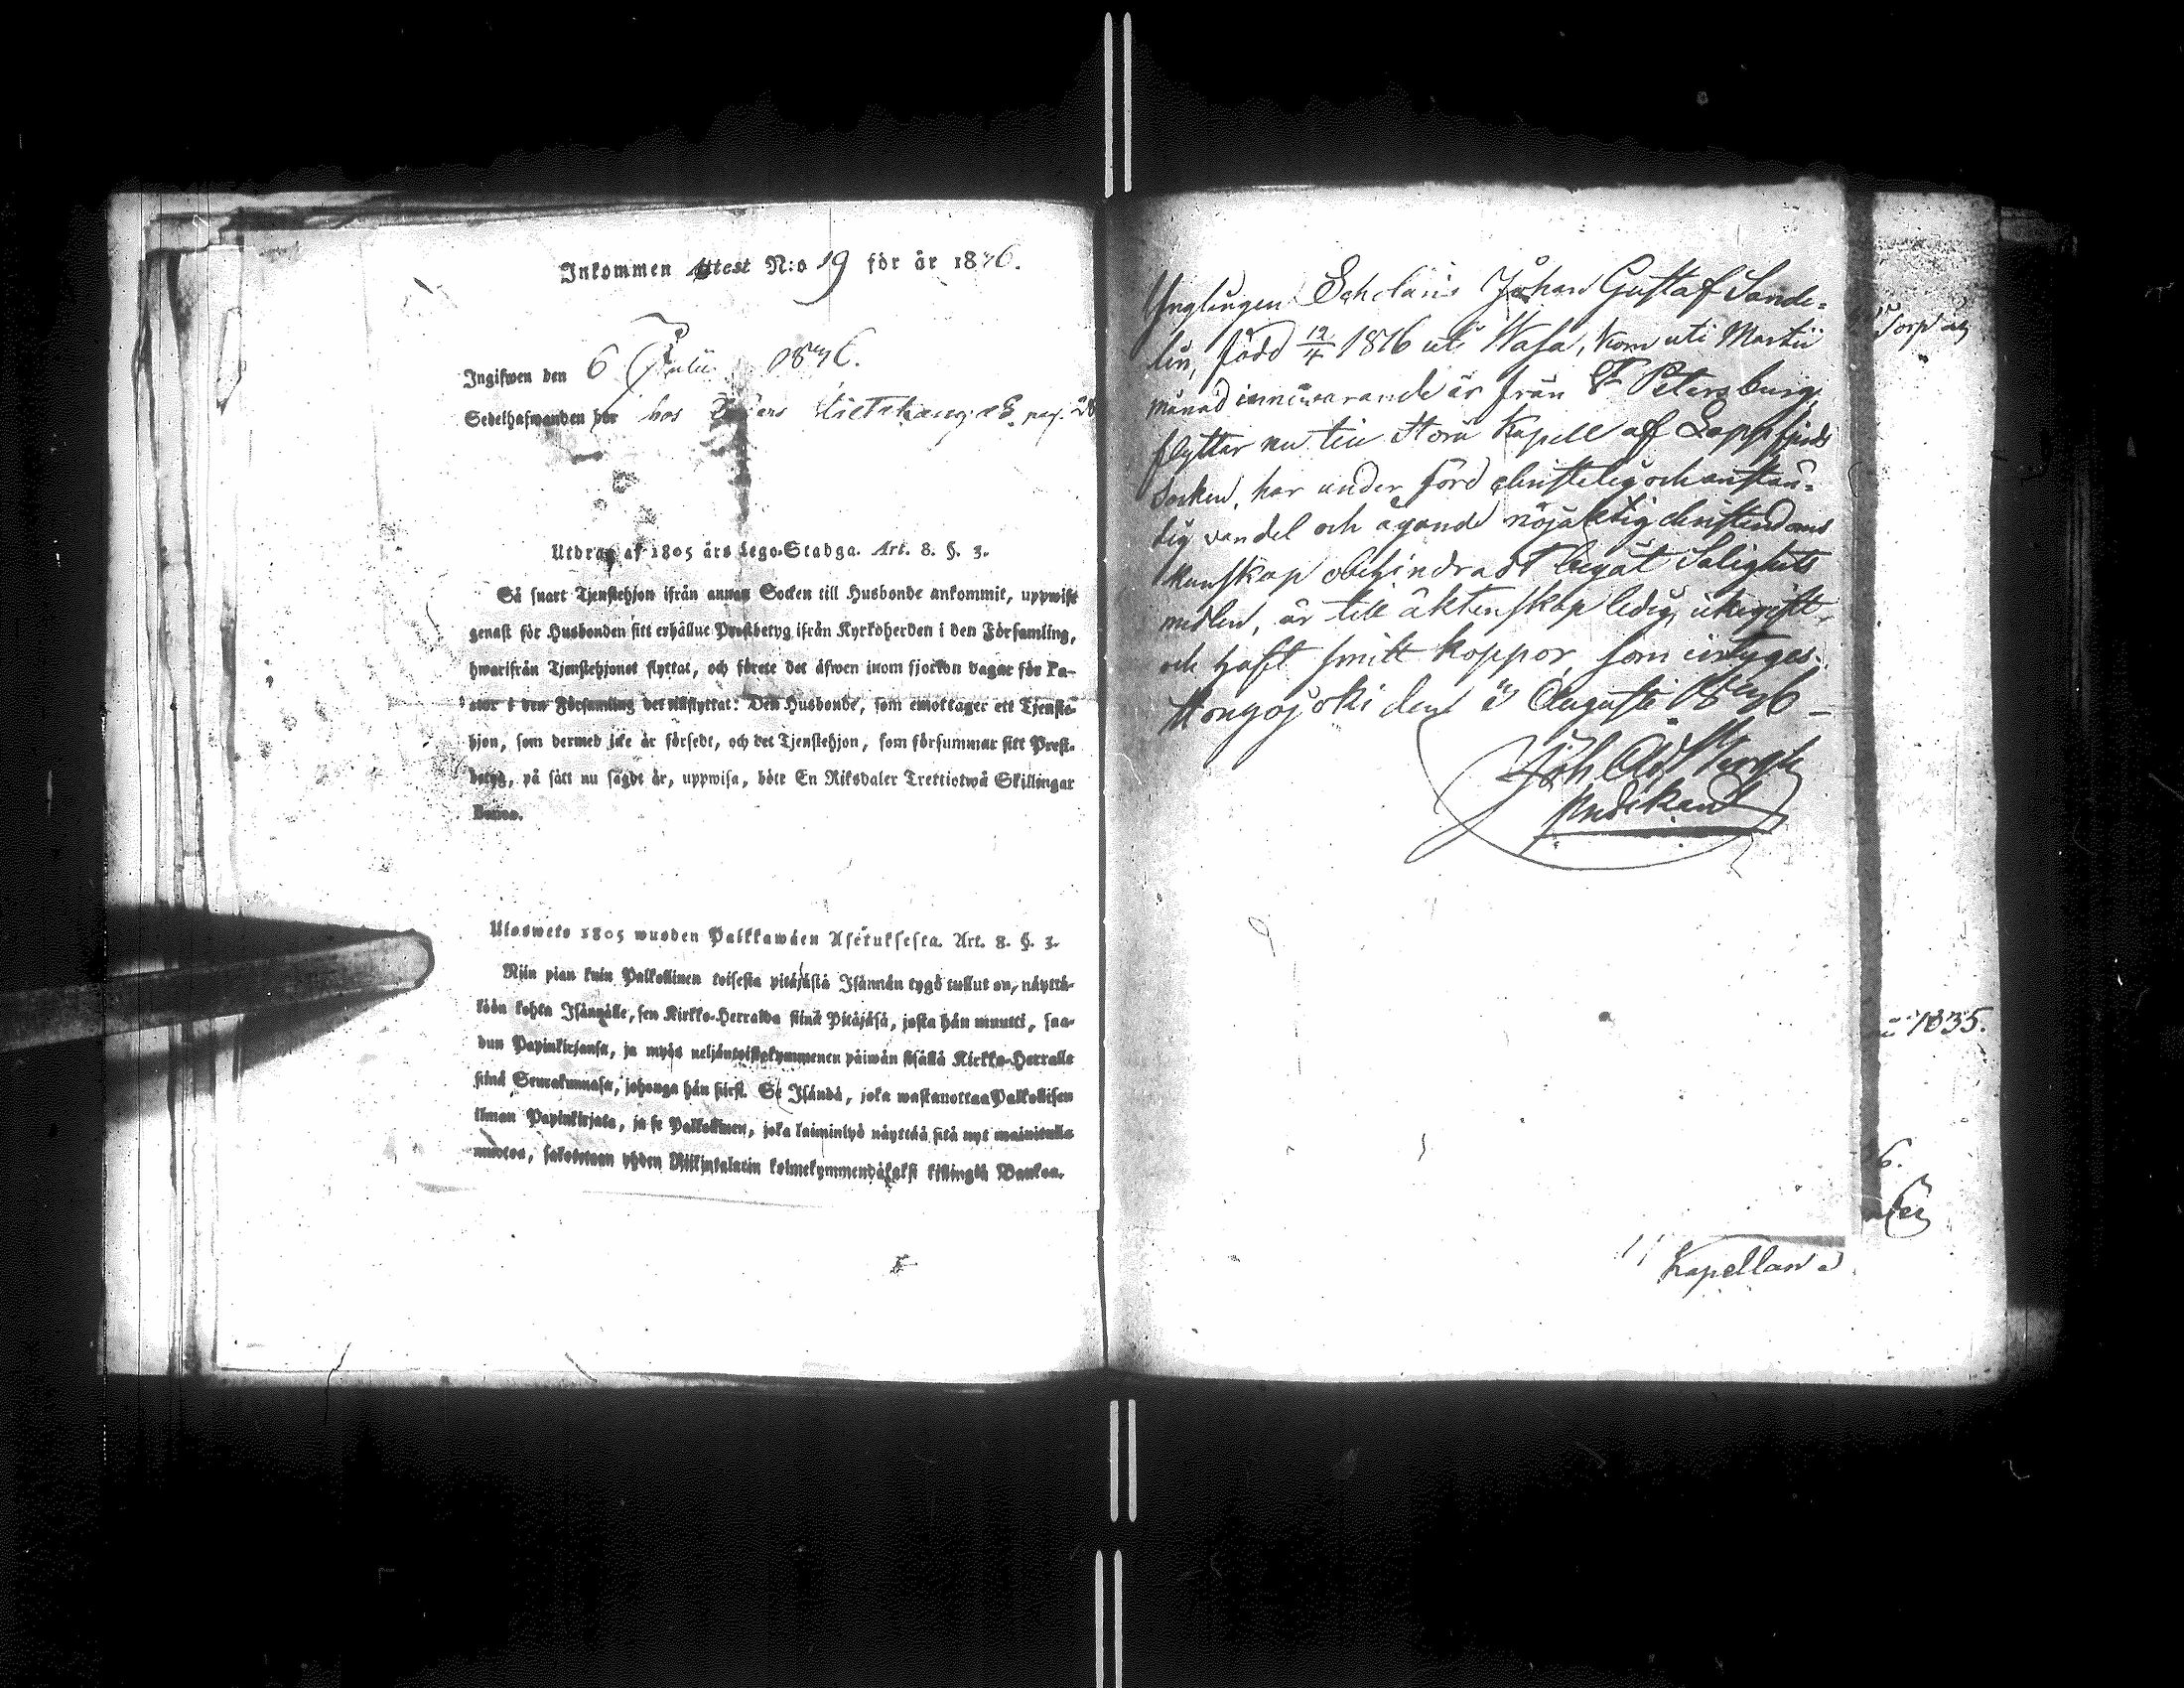 Inkommen Attest N:o 19 för år 1836.
Ingifwen den 6 Julii 1836.
Sedelhafwanden bor hos
Utdrag af 1805 års Lego-Stadga. Art. 8. §. 3.
Så snart Tjenstehjon ifrån annan Socken till Husbonde ankommit, uppwise
genast för Husbonden sitt erhållne Prestbetyg ifrån Kyrkoherden i den Församling,
hwarifrån Tjenstehjonet flyttat, och förete det äfwen inom fjorton dagar för Pa-
stor i den Församling det tillflyttat: Den Husbonde, som emottager ett Tjenste-
hjon, som dermed icke är försedt, och det Tjenstehjon, som försummar sitt Prest-
betyg, på sätt nu sagdt är, uppwisa, böte En Riksdaler Trettiotwå Skillingar
Banco.
Uloswete 1805 wuoden Palkkawäen Asetuksesta. Art. 8. §. 3.
Niin pian kuin Palkollinen toisesta pitäjästä Isännän tygö tullut on, näyttä-
köön kohta Isännälle, sen Kirkko-Herralda siinä Pitäjäsä, josta hän muutti, saa-
dun Papinkirjansa, ja myös neljäntoistakymmenen päiwän sisällä Kirkko-Herralle
siinä Seurakunnasa, johonga hän siirsi. Se Isändä, joka wastanottaa Palkollisen
ilman Papinkirjata, ja se Palkollinen, joka laiminlyö näyttää sitä nyt mainitulla
muotoa, sakotetaan yhden Riikintalarin kolmekymmendäkaksi killingiä Bankoa.
Ynglingen Scholaris Johan Gustaf Sande-
lin, född 12/4 1816 uti Wasa, kom uti Martii
månad innewarande år från St Petersburg,
flyttar nu till Storå Kapell af Lappfjärds
Socken, har under förd christelig och anstän-
dig vandel och ägande nöjaktig christendoms
kunskap obehindradt begått Salighets
medlen, är till äktenskap ledig,
och haft smitt koppor, som intygas.
Kongojoki den 3 Augusti 1836
Joh Adf
predikant
Torp
1835.
6.
Kapellan